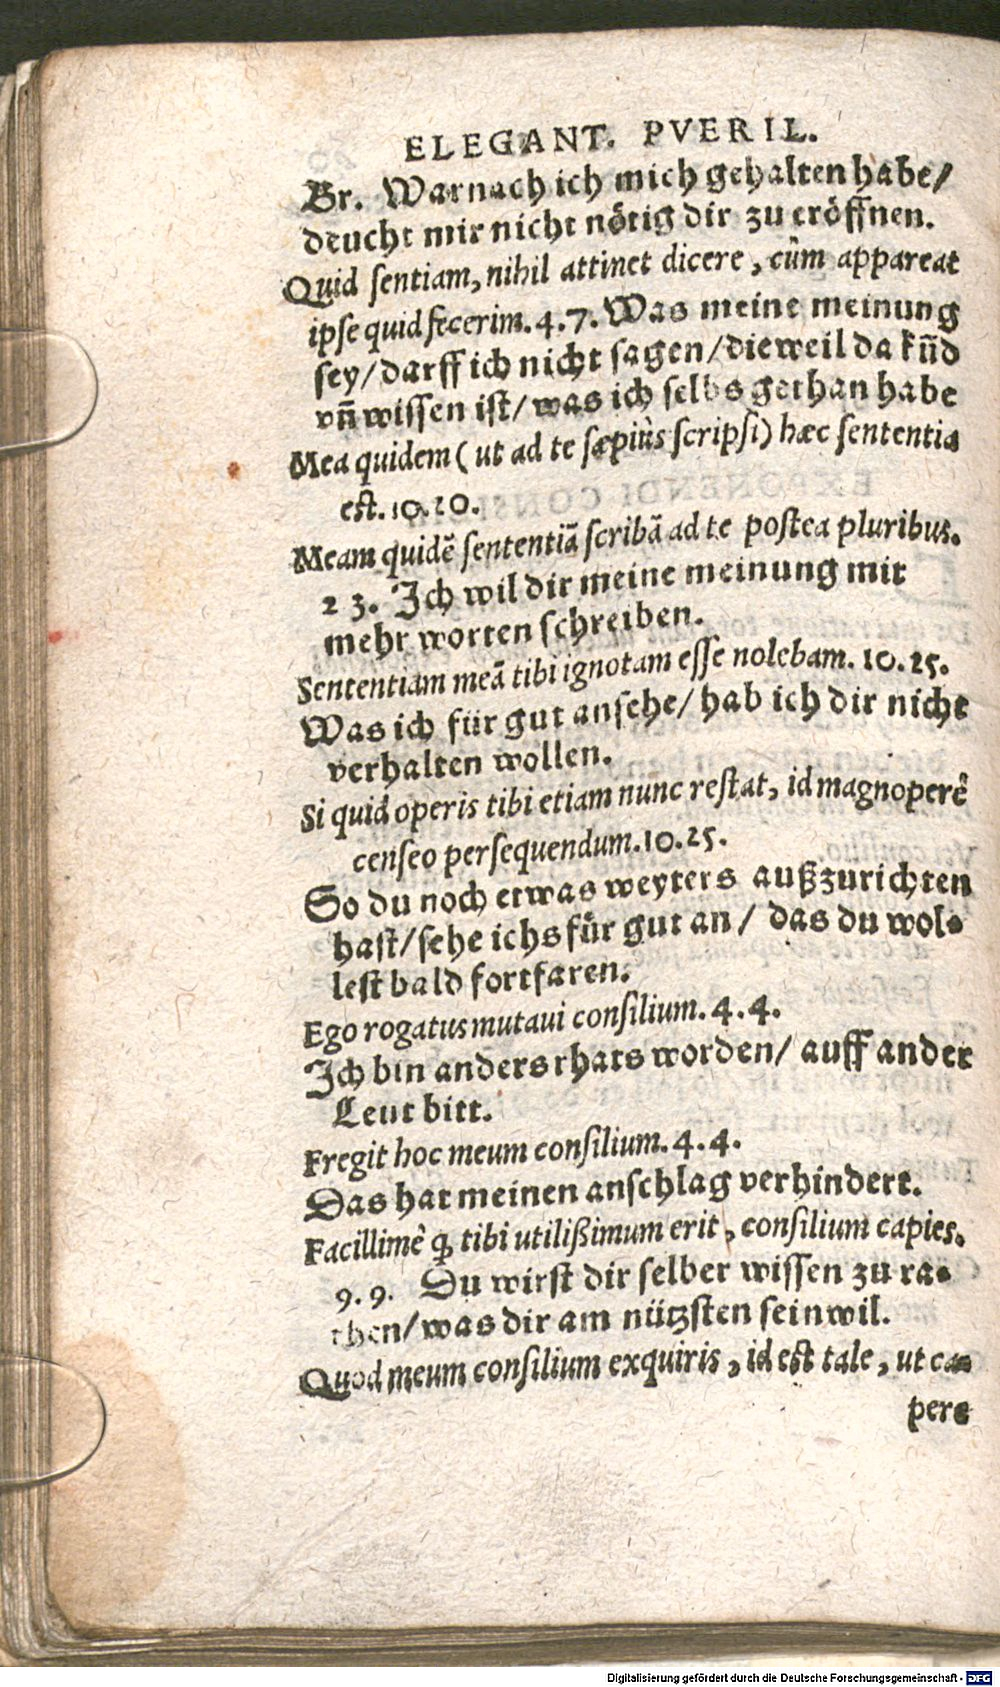 ELEGANT. PVERIL.
Br. Warnach ich mich gehalten habe/
deucht mir nicht nötig dir zu eröffnen.
Quid sentiam, nihil attinet dicere, cûm appareat
ipse quid fecerim. 4. 7. Was meine meinung
sey/ darff ich nicht sagen/ dieweil da kuñd
vñ wissen ist/ was ich selbs gethan habe
Mea quidem ( ut ad te sæpiùs scripsi) hæc sententia
est. 10. 20.
Meam quidẽ sententiã scribã ad te postea pluribus.
2 3. Ich wil dir meine meinung mit
mehr worten schreiben.
Sententiam meã tibi ignotam esse nolebam. 10. 25.
Was ich für gut ansehe/ hab ich dir nicht
verhalten wollen.
Si quid operis tibi etiam nunc restat, id magnoperê
censeo persequendum. 10. 25.
So du noch etwas weyters außzurichten
hast/ sehe ichs für gut an/ das du wol-
lest bald fortfaren.
Ego rogatus mutaui consilium. 4. 4.
Ich bin anders rhats worden/ auff ander
Leut bitt.
Fregit hoc meum consilium. 4. 4.
Das hat meinen anschlag verhindert.
Facillimê ꝗ tibi utilißimum erit, consilium capies.
9. 9. Du wirst dir selber wissen zu ra-
then/ was dir am nützsten sein wil.
Quod meum consilium exquiris, id est tale, ut ca-
pere
Digitalisierung gefördert durch die Deutsche Forschungsgemeinschaft - DFG